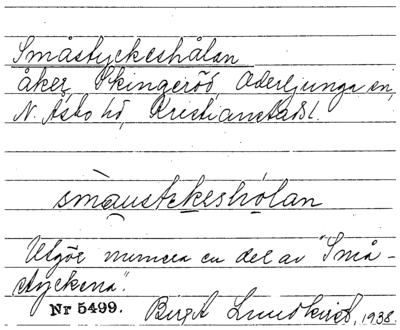 Småstyckeshålan
åker, Skingeröd, Oderljunga sn,
N. Åsbo hd, Kristianstads l.
småustekeshólan
Utgör numera en del av "Små-
styckena".
Nr 5499. Birgit Lundkvist, 1938.